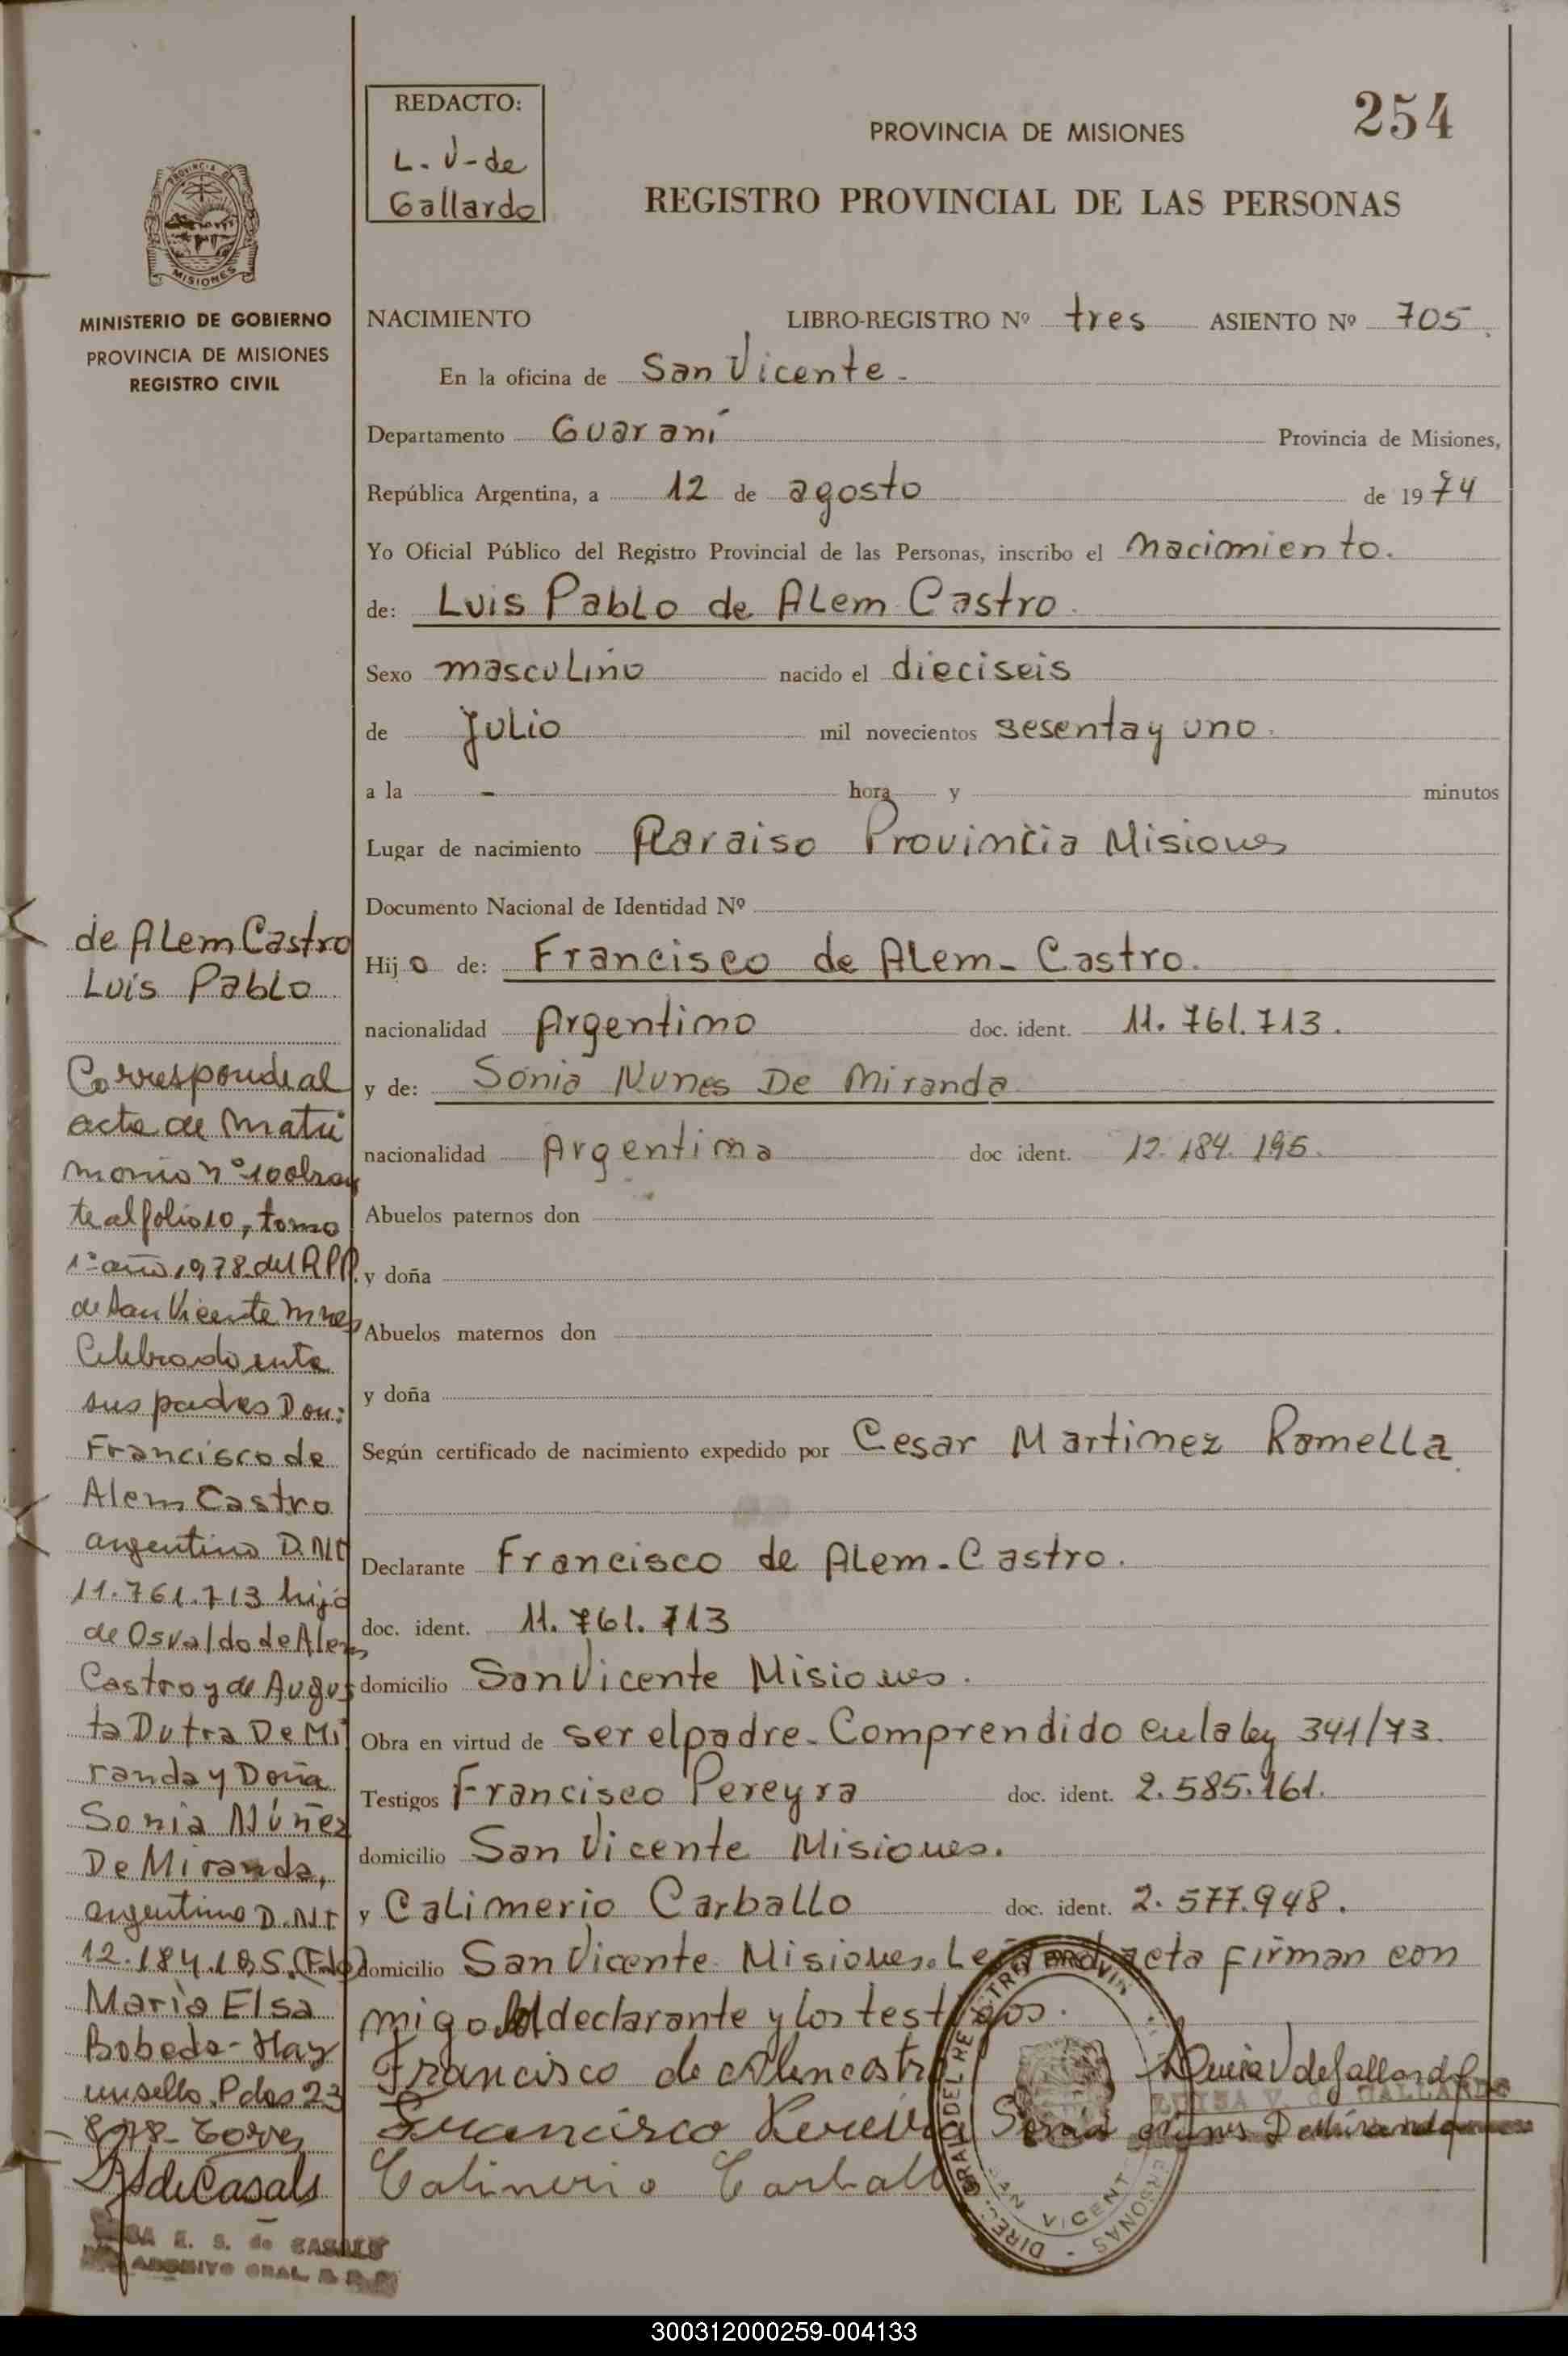 REDACTO:
L. V-de
Gallardo
254
PROVINCIA DE MISIONES
REGISTRO PROVINCIAL DE LAS PERSONAS
PROVINCIA DE
MISIONES
MINISTERIO DE GOBIERNO
PROVINCIA DE MISIONES
REGISTRO CIVIL
NACIMIENTO LIBRO-REGISTRO Nº tres ASIENTO Nº 705
En la oficina de San Vicente -
Departamento Guaraní Provincia de Misiones,
República Argentina, a 12 de agosto de 1974
Yo Oficial Público del Registro Provincial de las Personas, inscribo el Nacimiento.
de: Luis Pablo de Alem Castro
Sexo masculino nacido el dieciseis
de Julio mil novecientos sesenta y uno
a la - hora y minutos
Lugar de nacimiento Paraiso Provincia Misiones
Documento Nacional de Identidad Nº
Hijo de: Francisco de Alem - Castro.
nacionalidad Argentino doc. ident. 11.761.713.
y de: Sonia Nunes De Miranda
nacionalidad Argentina doc ident. 12.184.195.
Abuelos paternos don
y doña
Abuelos maternos don
y doña
Según certificado de nacimiento expedido por Cesar Martinez Ramella
Declarante Francisco de Alem - Castro.
doc. ident. 11.761.713
domicilio San Vicente Misiones.
Obra en virtud de ser el padre - Comprendido en la ley 341/73.
Testigos Francisco Pereyra doc. ident. 2.585.161.
domicilio San Vicente Misiones.
y Calimerio Carballo doc. ident. 2.577.948.
domicilio San Vicente Misiones. Leída acta firman con
migo el declarante y los testigos.
Francisco de Alencastro
Francisco Pereira
Calimerio Carballo
Luisa V de Gallardo
LUISA V. de GALLARDO
Sonia Nunes De Miranda
DIREC. GRAL DEL REGISTRO PROVIN
PERSONAS
SAN VICENTE
de Alem Castro
Luis Pablo
Corresponde al
acta de Matri
monio nº 10 obran
te al folio 10, tomo
1º año 1978 del R.P.P.
de San Vicente Mnes
Celebrado entre
sus padres Don:
Francisco de
Alem Castro
argentino D.N.I
11.761.713 hijo
de Osvaldo de Alem
Castro y de Augus
ta Dutra De Mi
randa y Doña
Sonia Núñez
De Miranda,
argentina D.N.I
12.184.195. (Fdo)
María Elsa
Bobeda - Hay
un sello. Pdas 23
8-78-
de Casals
E. S. de CASALS
ARCHIVO GRAL. R. P. P.
300312000259-004133